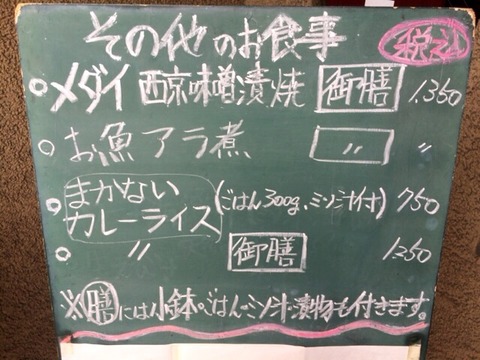 その他のお食事 税込
○メダイ 西京味噌漬焼 御膳 1,350
○お魚アラ煮 〃 〃
○まかないカレーライス (ごはん300g、ミソ汁付) 750
○〃 御膳 1250
※膳には小鉢・ごはん・ミソ汁・漬物も付きます。